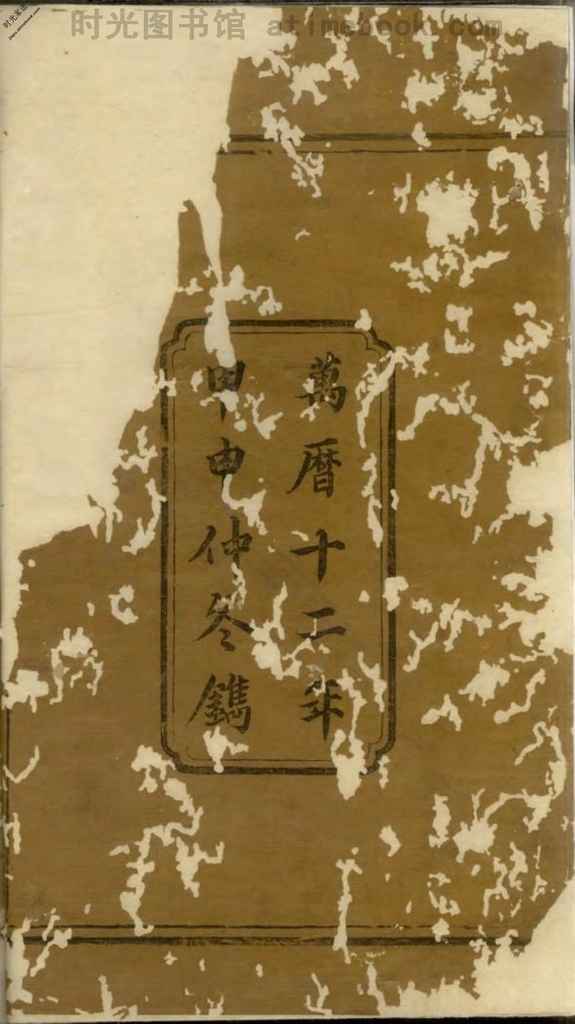 时光图书馆 atimebook.com
萬曆十二年
甲申仲冬鐫